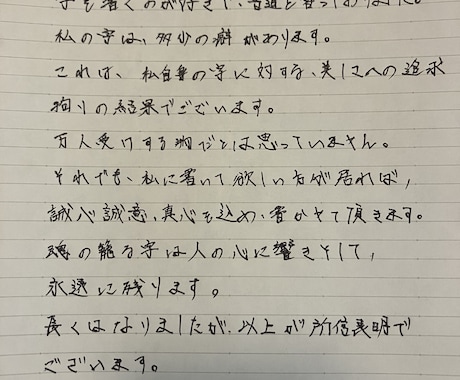 字を書くのが好きで、書道を習っておりました。
私の字は、多少の癖があります。
これは、私自身の字に対する、美しさへの追求
拘りの結果でございます。
万人受けする物だとは思っていません。
それでも、私に書いて欲しい方が居れば、
誠心誠意、真心を込め、書かせて頂きます。
魂の籠る字は人の心に響きそして、
永遠に残ります。
長くはなりましたが、以上が所信表明で
ございます。